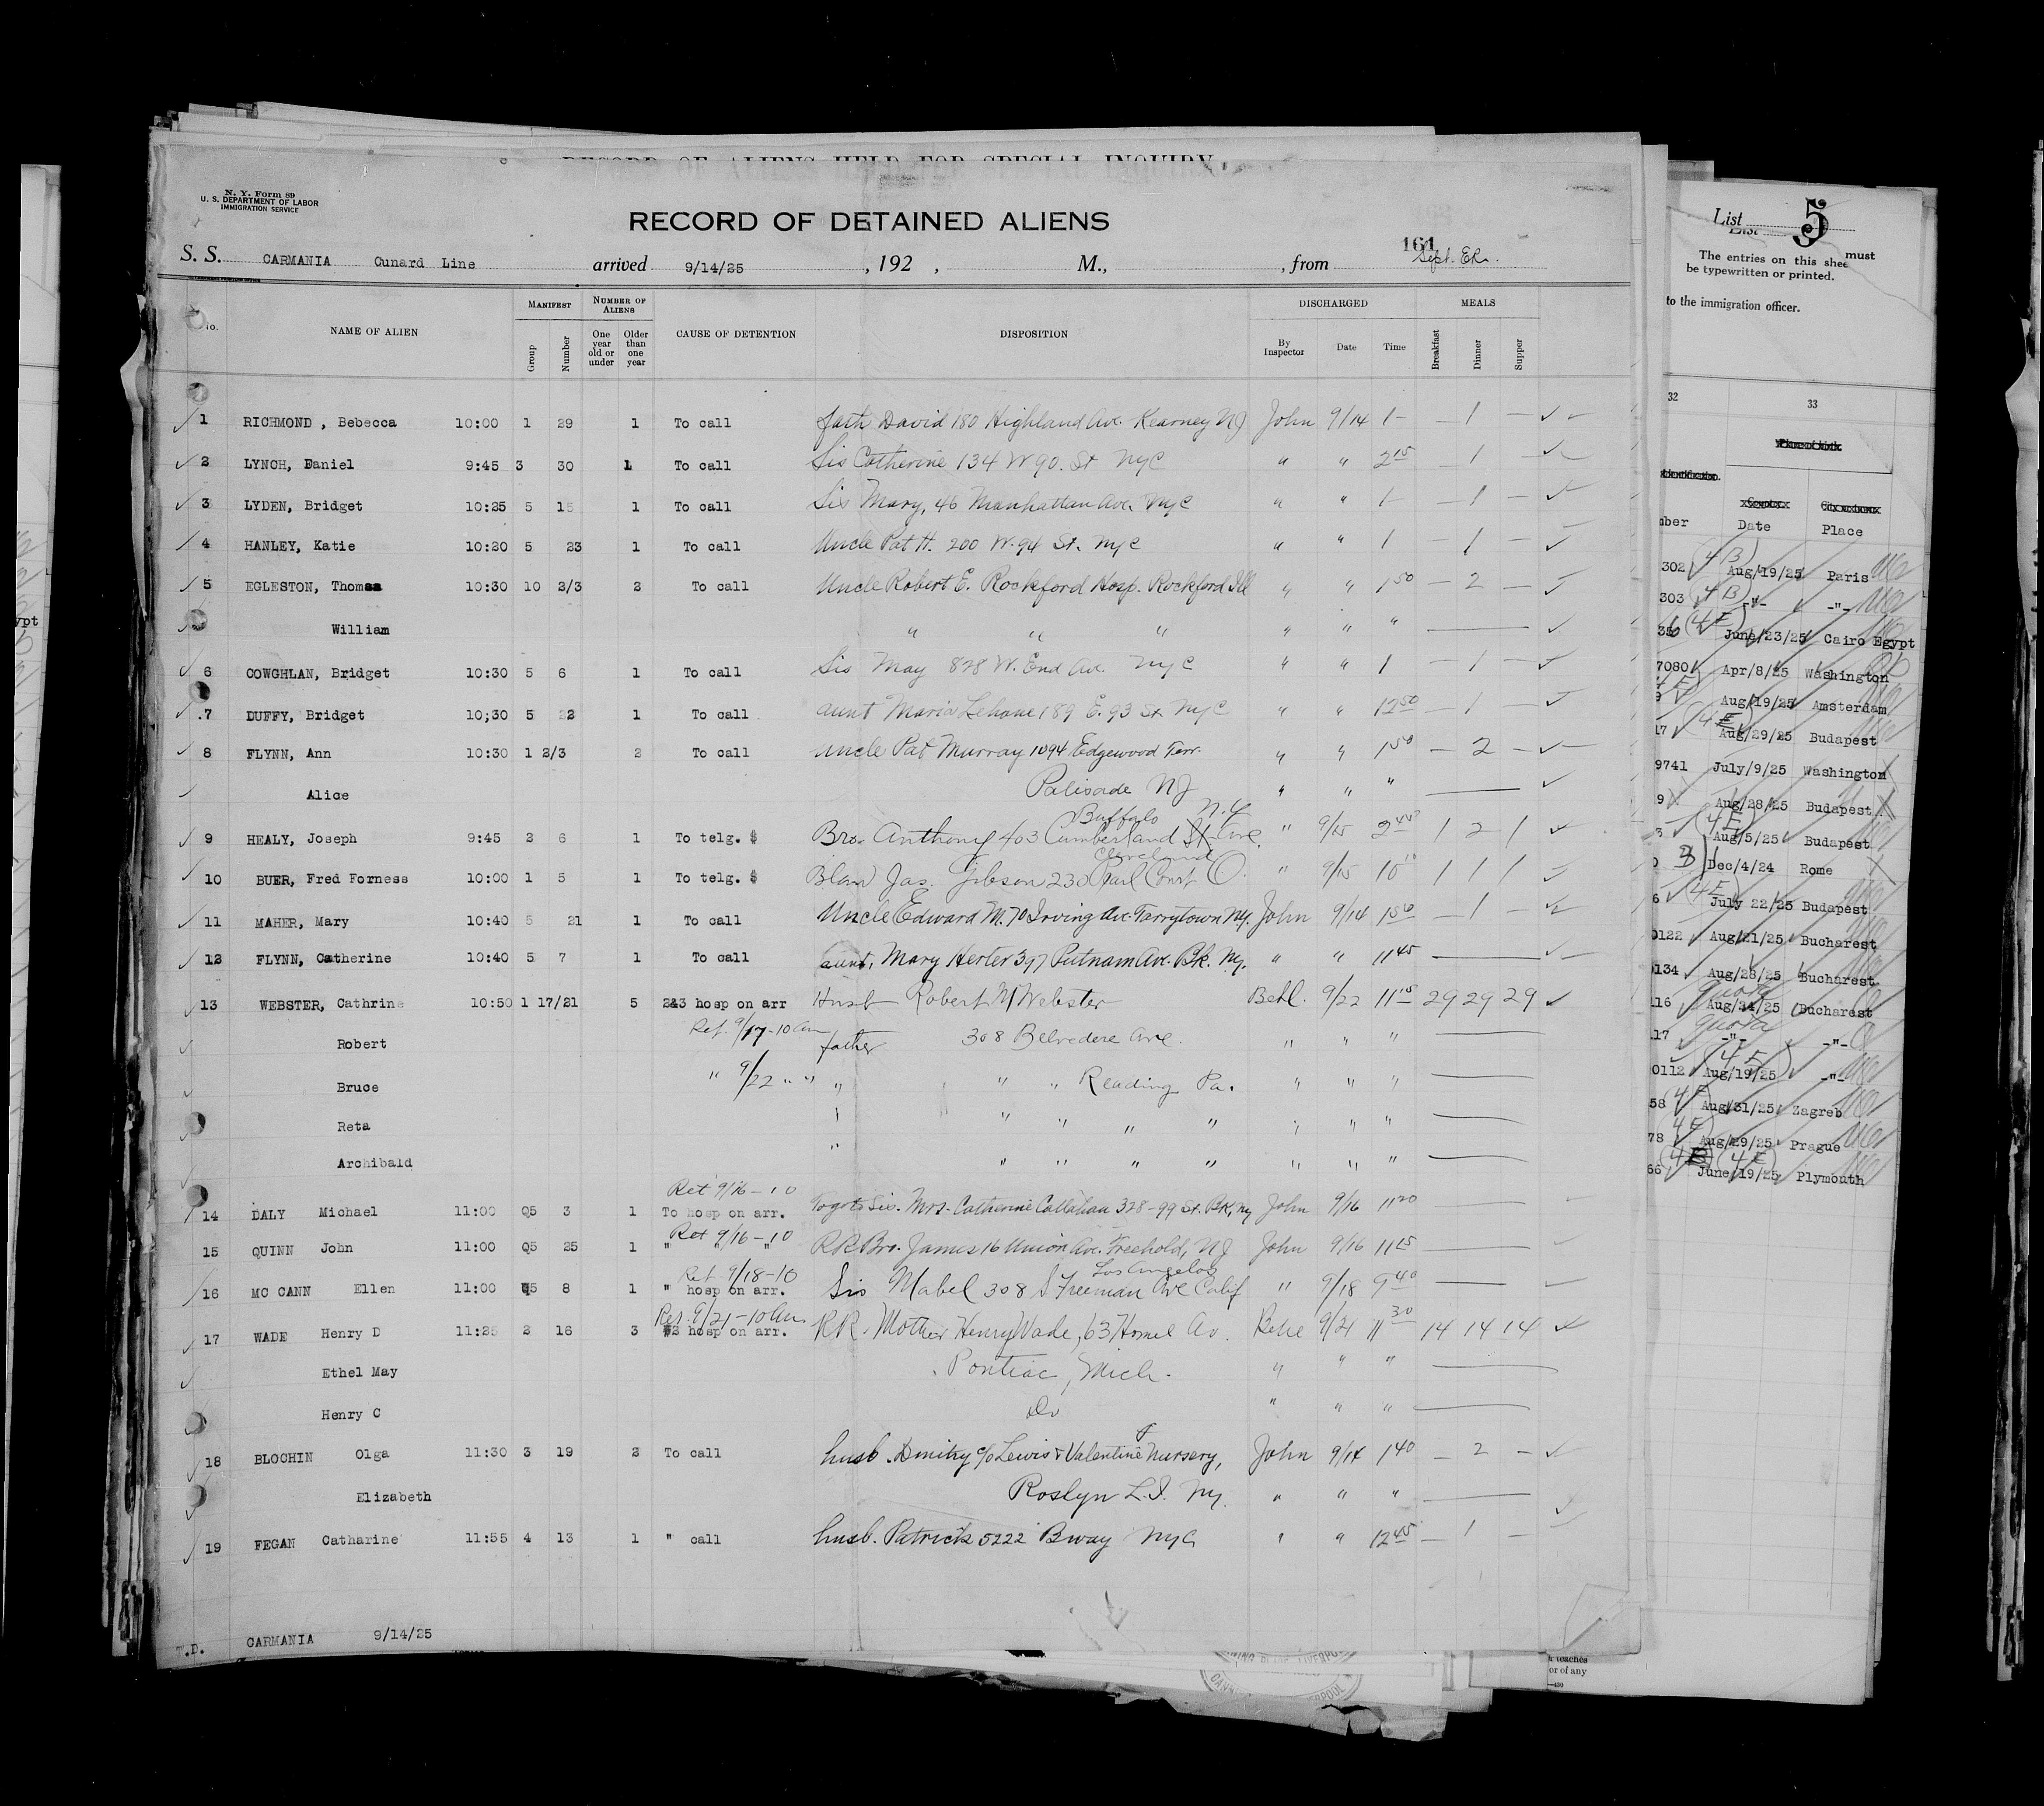 RECORD OF ALIENS HELD FOR SPECIAL INQUIRY
N. Y. Form 89
U. S. DEPARTMENT OF LABOR
IMMIGRATION SERVICE
RECORD OF DETAINED ALIENS
161
S. S. CARMANIA Cunard Line arrived 9/14/25 , 192 , M., , from Sept.
MANIFEST NUMBER OF ALIENS DISCHARGED MEALS
No. NAME OF ALIEN Group Number One year old or under Older than one year CAUSE OF DETENTION DISPOSITION By Inspector Date Time Breakfast Dinner Supper
1 RICHMOND , Bebecca 10:00 1 29 1 To call fath David 180 Highland Ave. Kearney NJ John 9/14 1- — 1 —
2 LYNCH, Daniel 9:45 3 30 1 To call Sis Catherine 134 W 90. St NYC " " 2 15 — 1 —
3 LYDEN, Bridget 10:25 5 15 1 To call Sis Mary, 46 Manhattan Ave. NYC " " 1- — 1 —
4 HANLEY, Katie 10:20 5 23 1 To call Uncle Pat H. 200 W. 94 St. NYC " " 1 — 1 —
5 EGLESTON, Thomas 10:30 10 2/3 2 To call Uncle Robert E. Rockford Hosp. Rockford Ill " " 1 50 — 2 —
William " " " " " "
6 COWGHLAN, Bridget 10:30 5 6 1 To call Sis May 878 W. End Ave. NYC " " 1 — 1 —
7 DUFFY, Bridget 10;30 5 22 1 To call aunt Maria Lehane 189 E. 93 St NYC " " 12 50 — 1 —
8 FLYNN, Ann 10:30 1 2/3 2 To call Uncle Pat Murray 1094 Edgewood Terr. " " 1 50 — 2 —
Alice Palisade NJ " " "
Buffalo N.Y
9 HEALY, Joseph 9:45 2 6 1 To telg. $ Bro. Anthony 403 Cumberland St Ave. " 9/15 2 1 2 1
Cleveland
10 BUER, Fred Forness 10:00 1 5 1 To telg. $ Jas. Gibson 230 Pearl Court O. " 9/15 10 1 1 1
11 MAHER, Mary 10:40 5 21 1 To call Uncle Edward M. 70 Irving Ave. Tarrytown Ny. John 9/14 1 50 — 1 —
12 FLYNN, Catherine 10:40 5 7 1 To call aunt, Mary Herler 397 Putnam Ave. Bk. Ny. " " 11 45
13 WEBSTER, Cathrine 10:50 1 17/21 5 2&3 hosp on arr Husb Robert Webster 9/22 11 15 29 29 29
Ret. 9/17-10 am
Robert father 308 Belvedere Ave. " " "
Bruce " 9/22 " " " " " Reading Pa. " " "
Reta " " " " " " " "
Archibald " " " " " " " "
Ret 9/16-10
14 DALY Michael 11:00 Q5 3 1 To hosp on arr. To go to Sis. Mrs. Catherine Callahan 328-99 St. Bk, Ny John 9/16 11 20
Ret 9/16-10
15 QUINN John 11:00 Q5 25 1 " " " RR Bro. James 16 Union Ave. Freehold, NJ John 9/16 11 15
Ret 9/18-10 Los Angelos
16 MC CANN Ellen 11:00 Q5 8 1 " hosp on arr. Sis Mabel 308 S Freeman Ave Calif " 9/18 9 40
Ret. 9/21-10 am
17 WADE Henry D 11:25 2 16 3 hosp on arr. RR. Mother Henry Wade, 63 Av. 9/21 11 30 14 14 14
Ethel May Pontiac, Mich. " " "
Henry C Do " " "
18 BLOCHIN Olga 11:30 3 19 2 To call husb. Dmitry c/o Lewis & Valentine Nursery, John 9/14 1 40 — 2 —
Elizabeth Roslyn L.I. Ny. " " "
19 FEGAN Catharine 11:55 4 13 1 " call husb. Patrick 5222 Bway NYC " " 12 45 — 1 —
T.D. CARMANIA 9/14/25
List 5
The entries on this sheet must
be typewritten or printed.
to the immigration officer.
32 33
Date Place
302 (4 B) Aug/19/25 Paris
303 (4 B) -"- -"-
June/23/25 Cairo Egypt
7080 Apr/8/25 Washington
Aug/19/25 Amsterdam
17 (4 E) Aug/29/25 Budapest
9741 July/9/25 Washington
9 Aug/28/25 Budapest
(4 E) Aug/5/25 Budapest
Dec/4/24 Rome
6 (4 E) July 22/25 Budapest
0122 Aug/21/25 Bucharest
0134 Aug/28/25 Bucharest
116 quota Aug/24/25 Bucharest
117 quota -"- -"-
0112 (4 E) Aug/19/25 -"-
58 4 E Aug/31/25 Zagreb
78 4 E Aug/29/25 Prague
66 (4 E) June/19/25 Plymouth